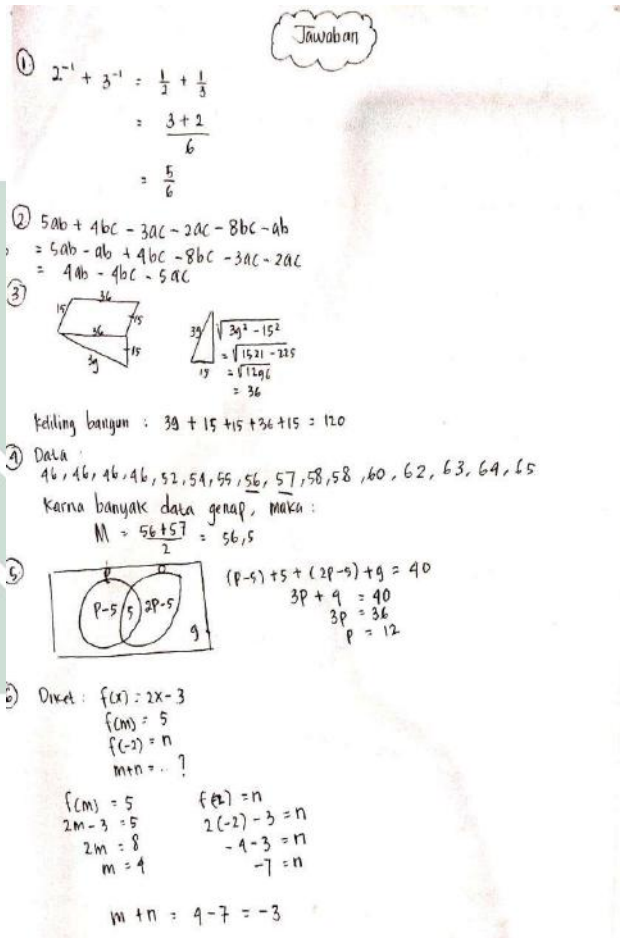 Jawaban
① 2⁻¹ + 3⁻¹ = 1/2 + 1/3
= 3+2/6
= 5/6
② 5ab + 4bc - 3ac - 2ac - 8bc - ab
= 5ab - ab + 4bc - 8bc - 3ac - 2ac
= 4ab - 4bc - 5ac
③
36
15
15
36
15
39
39
15
√39² - 15²
= √1521 - 225
= √1296
= 36
Keliling bangun : 39 + 15 + 15 + 36 + 15 = 120
④ Data :
46, 46, 46, 46, 52, 54, 55, 56, 57, 58, 58, 60, 62, 63, 64, 65
Karna banyak data genap, maka :
M = 56+57/2 = 56,5
⑤
P
O
P-5
5
2P-5
9
(P-5) + 5 + (2P-5) + 9 = 40
3P + 4 = 40
3P = 36
P = 12
⑥ Diket : f(x) = 2x - 3
f(m) = 5
f(-2) = n
m+n = .. ?
f(m) = 5
2m - 3 = 5
2m = 8
m = 4
f(-2) = n
2(-2) - 3 = n
-4 - 3 = n
-7 = n
m + n = 4 - 7 = -3